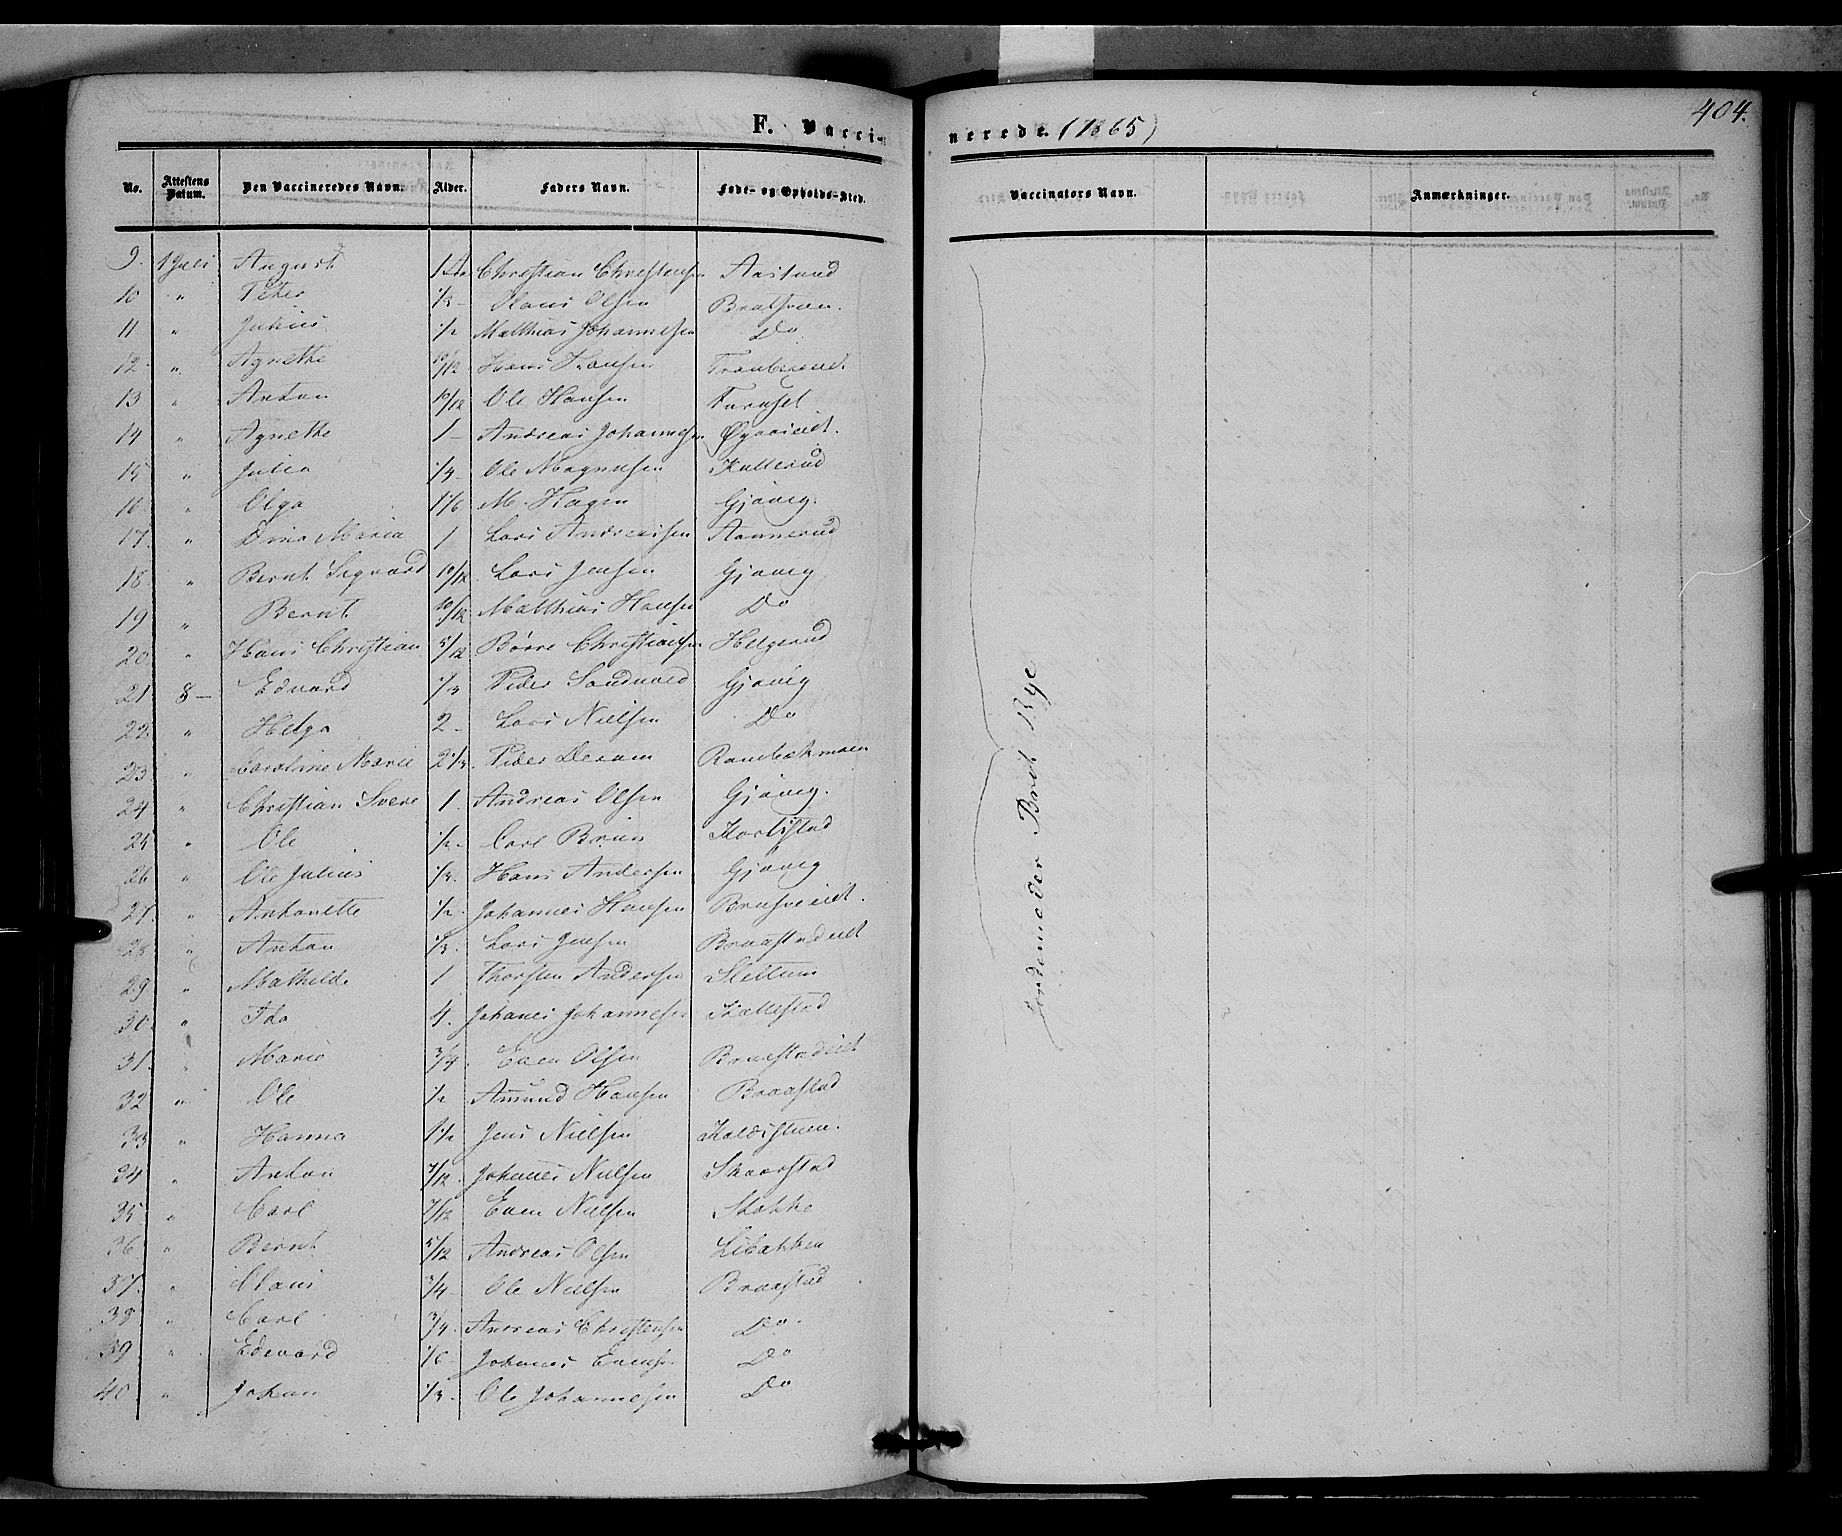 404.
F. Vaccinerede (1865)
No. Attestens Datum. Den Vaccineredes Navn. Alder. Faders Navn. Føde- og Opholds-Sted. Vaccinators Navn. Anmærkninger.
9. 1 Juli August Christian Christensen Aaslund
10 " Peter 1/3 - Claus Olsen
11 " Julius 1/2 Matthias Johannesen Do
12 " Agnethe 10/12 Hans Hansen
13 " Anton 10/12 Ole Hansen Furuset
14 " Agnethe 1 - Andreas Johannesen
15 " Julia 1/3 - Ole Magnusen Kulterud
16 " Olga 1 1/6 M. Hagen Gjøvig.
17. " Dina Maria 1 Lars Andreassen
18 " Bernt Sigvard 10/12. Lars Jensen Gjøvig
19 " Bernt 10/12 Matthias Hansen Do
20 " Hans Christian 5/12 Børre Christiansen Helgerud
21. 8 - Edvard 1/3 Peder Sandvold Gjøvig
22. " Helga 2 - Lars Nielsen Do
23 " Caroline Marie 2 1/3. Peder
24 " Christian Svere 1. Andreas Olsen Gjøvig.
25 " Ole 1/2 - Carl Bruun
26 " Ole Julius 1/3. Hans Andersen Gjøvig
27. " Antonette 1/2 - Johannes Hansen
28 " Anton 1/3. Lars Jensen Braastadeiet
29 " Mathilde 1 Thorsten Andersen Slettum
30. " Ida 4. Johanes Johannesen Kallestad
31. " Marie 3/4 Even Olsen Braastadeiet
32 " Ole 1/2 Amund Hansen Braastad
33 " Hanna 1 1/2 Jens Nielsen
34 " Anton 7/12. Johanes Nielsen Skaarstad
35 " Carl 7/12 Even Nielsen Stokke
36. " Bernt 5/12 Andreas Olsen Libakken
37. " Claus 3/4 Ole Nielsen Braastad
38 " Carl 3/4. Andreas Christensen Do.
39 " Edevard 1/6 - Johanes Evensen Do
40 " Johan 1/3 - Ole Johannesen Do
Jordemoder Berit Rye